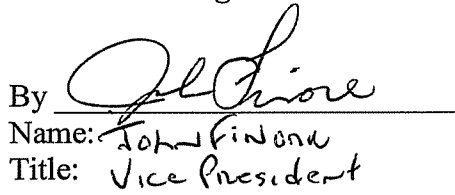 By
Name: John
Title: Vice President